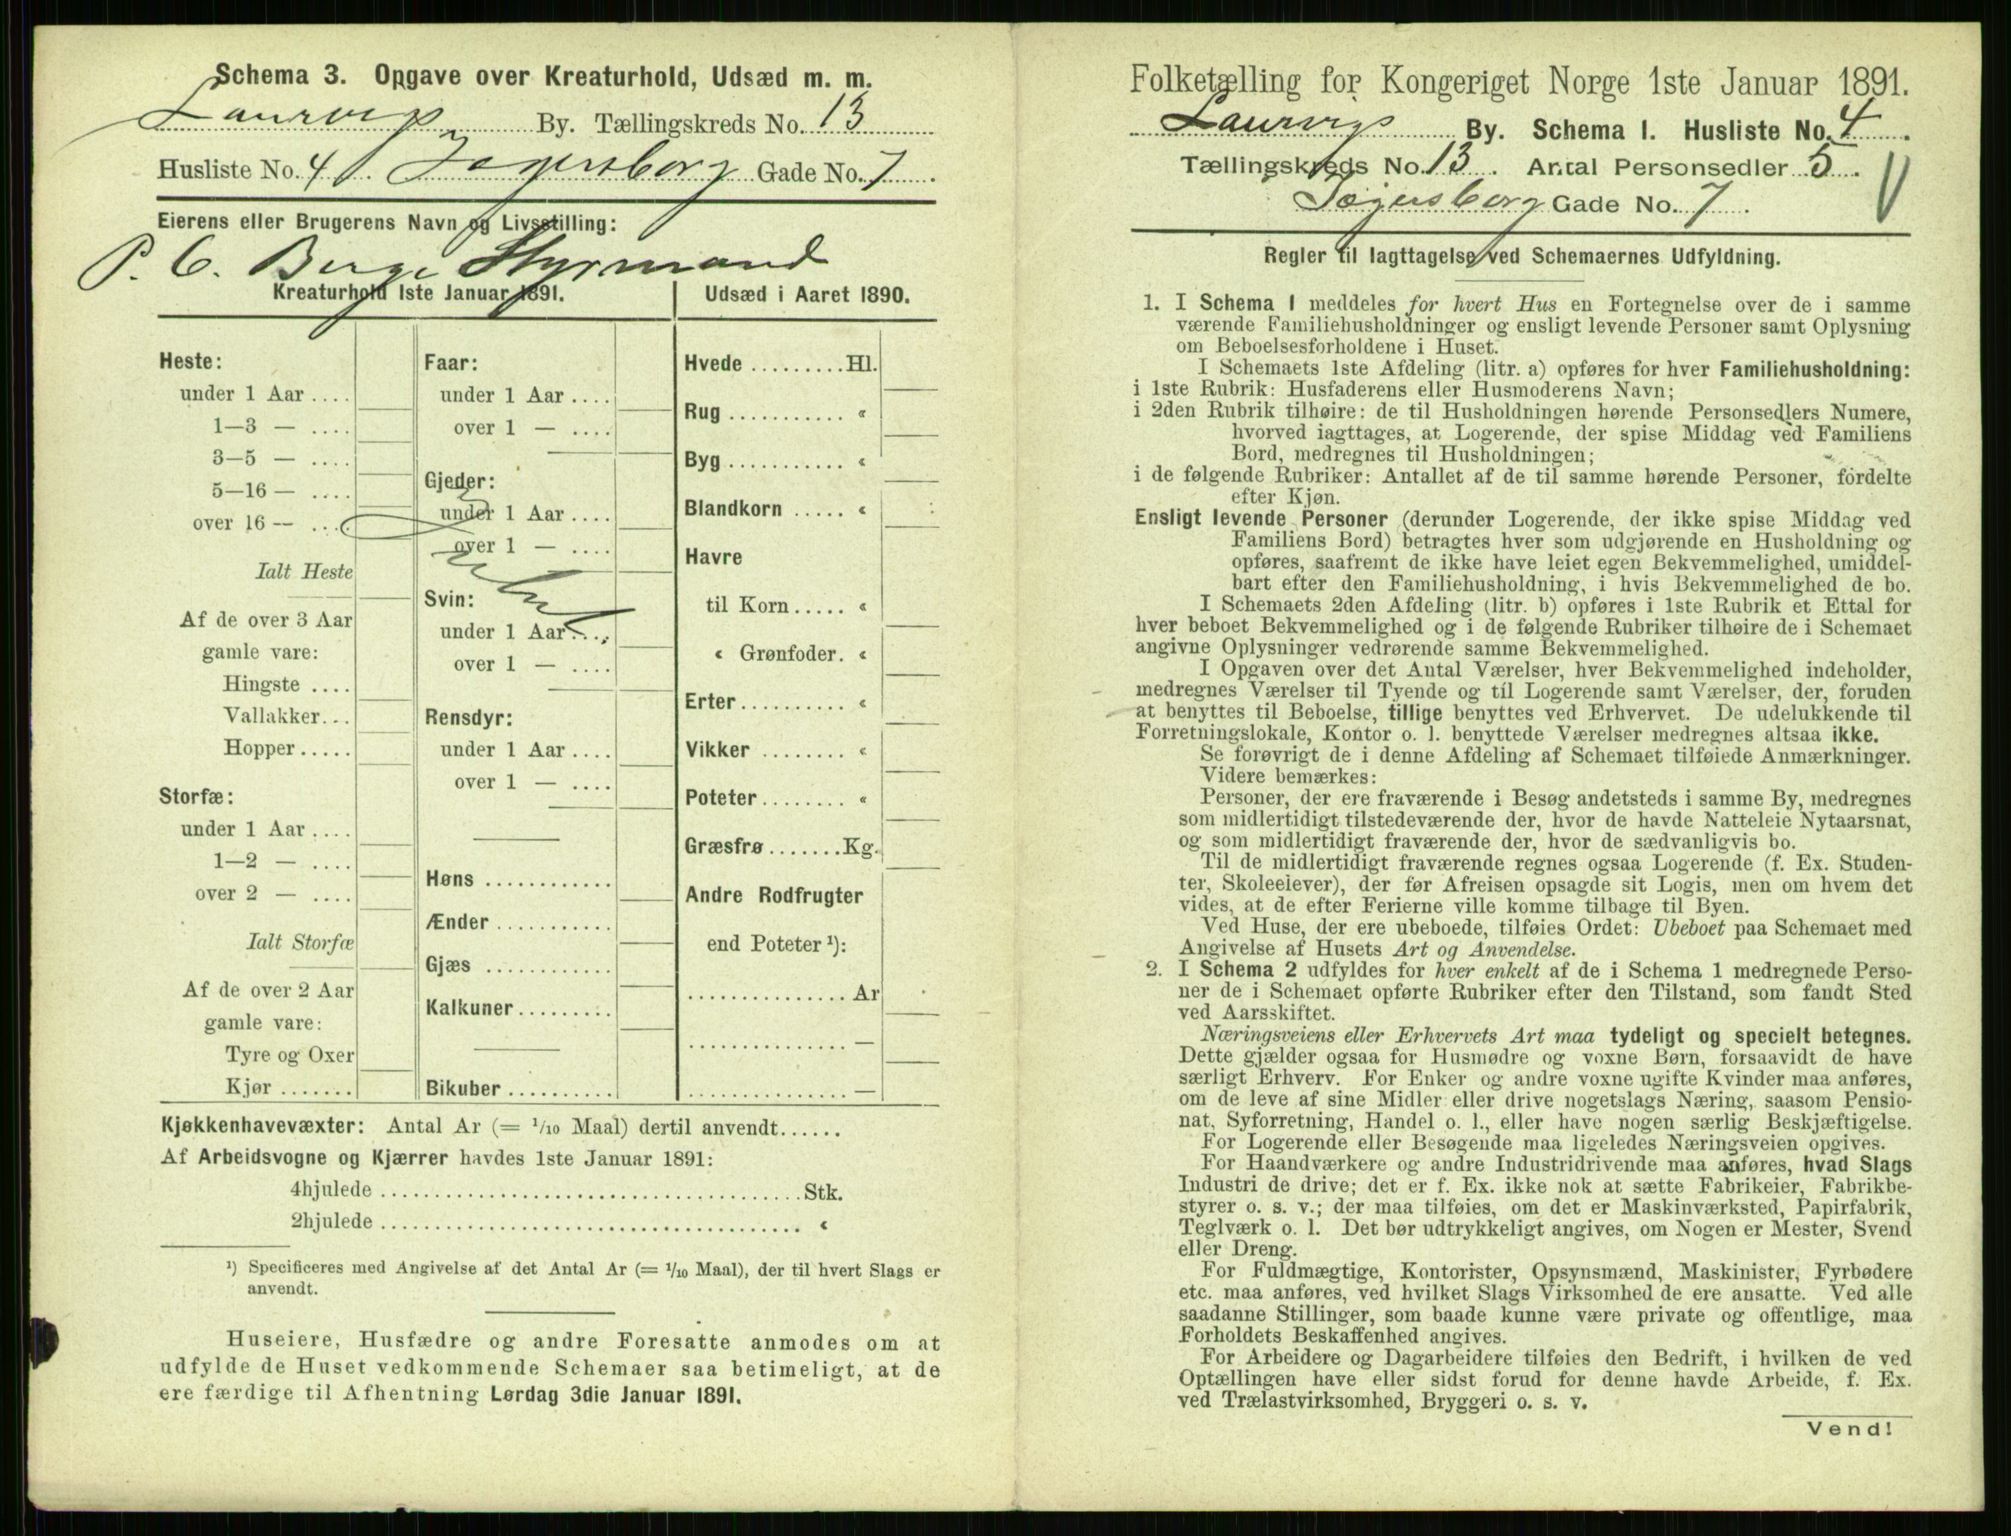 Schema 3. Opgave over Kreaturhold, Udsæd m. m.
Laurvigs By. Tællingskreds No. 13
Husliste No. 4 Jegersborg Gade No. 7
Eierens eller Brugerens Navn og Livsstilling:
P. C. Berge Styrmand
Kreaturhold 1ste Januar 1891.
Heste:
under 1 Aar ....
1—3 — ....
3—5 — ....
5—16 — ....
over 16 — ....
Ialt Heste
Af de over 3 Aar
gamle vare:
Hingste ....
Vallakker...
Hopper.....
Storfæ:
under 1 Aar ....
1—2 — ....
over 2 — ....
Ialt Storfæ
Af de over 2 Aar
gamle vare:
Tyre og Oxer
Kjør .......
Faar:
under 1 Aar ....
over 1 — ....
Gjeder:
under 1 Aar ....
over 1 — ....
Svin:
under 1 Aar ....
over 1 — ....
Rensdyr:
under 1 Aar ....
over 1 — ....
Høns ............
Ænder ...........
Gjæs ............
Kalkuner.........
Bikuber ..........
Udsæd i Aaret 1890.
Hvede .........Hl.
Rug ........... «
Byg ........... «
Blandkorn ..... «
Havre
til Korn ..... «
« Grønfoder. «
Erter.......... «
Vikker ........ «
Poteter........ «
Græsfrø.......Kg.
Andre Rodfrugter
end Poteter ¹):
............... Ar
............... —
............... —
Kjøkkenhavevæxter: Antal Ar (= 1/10 Maal) dertil anvendt......
Af Arbeidsvogne og Kjærrer havdes 1ste Januar 1891:
4hjulede ........................................ Stk.
2hjulede ........................................ «
¹) Specificeres med Angivelse af det Antal Ar (= 1/10 Maal), der til hvert Slags er
anvendt.
Huseiere, Husfædre og andre Foresatte anmodes om at
udfylde de Huset vedkommende Schemaer saa betimeligt, at de
ere færdige til Afhentning Lørdag 3die Januar 1891.
Folketælling for Kongeriget Norge 1ste Januar 1891.
Laurvigs By. Schema 1. Husliste No. 4
Tællingskreds No. 13. Antal Personsedler 5.
Jegersborg Gade No. 7.
Regler til Iagttagelse ved Schemaernes Udfyldning.
1. I Schema 1 meddeles for hvert Hus en Fortegnelse over de i samme
værende Familiehusholdninger og ensligt levende Personer samt Oplysning
om Beboelsesforholdene i Huset.
I Schemaets 1ste Afdeling (litr. a) opføres for hver Familiehusholdning:
i 1ste Rubrik: Husfaderens eller Husmoderens Navn;
i 2den Rubrik tilhøire: de til Husholdningen hørende Personsedlers Numere,
hvorved iagttages, at Logerende, der spise Middag ved Familiens
Bord, medregnes til Husholdningen;
i de følgende Rubriker: Antallet af de til samme hørende Personer, fordelte
efter Kjøn.
Ensligt levende Personer (derunder Logerende, der ikke spise Middag ved
Familiens Bord) betragtes hver som udgjørende en Husholdning og
opføres, saafremt de ikke have leiet egen Bekvemmelighed, umiddel-
bart efter den Familiehusholdning, i hvis Bekvemmelighed de bo.
I Schemaets 2den Afdeling (litr. b) opføres i 1ste Rubrik et Ettal for
hver beboet Bekvemmelighed og i de følgende Rubriker tilhøire de i Schemaet
angivne Oplysninger vedrørende samme Bekvemmelighed.
I Opgaven over det Antal Værelser, hver Bekvemmelighed indeholder,
medregnes Værelser til Tyende og til Logerende samt Værelser, der, foruden
at benyttes til Beboelse, tillige benyttes ved Erhvervet. De udelukkende til
Forretningslokale, Kontor o. l. benyttede Værelser medregnes altsaa ikke.
Se forøvrigt de i denne Afdeling af Schemaet tilføiede Anmærkninger.
Videre bemærkes:
Personer, der ere fraværende i Besøg andetsteds i samme By, medregnes
som midlertidigt tilstedeværende der, hvor de havde Natteleie Nytaarsnat,
og som midlertidigt fraværende der, hvor de sædvanligvis bo.
Til de midlertidigt fraværende regnes ogsaa Logerende (f. Ex. Studen-
ter, Skoleelever), der før Afreisen opsagde sit Logis, men om hvem det
vides, at de efter Ferierne ville komme tilbage til Byen.
Ved Huse, der ere ubeboede, tilføies Ordet: Ubeboet paa Schemaet med
Angivelse af Husets Art og Anvendelse.
2. I Schema 2 udfyldes for hver enkelt af de i Schema 1 medregnede Perso-
ner de i Schemaet opførte Rubriker efter den Tilstand, som fandt Sted
ved Aarsskiftet.
Næringsveiens eller Erhvervets Art maa tydeligt og specielt betegnes.
Dette gjælder ogsaa for Husmødre og voxne Børn, forsaavidt de have
særligt Erhverv. For Enker og andre voxne ugifte Kvinder maa anføres,
om de leve af sine Midler eller drive nogetslags Næring, saasom Pensio-
nat, Syforretning, Handel o. l., eller have nogen særlig Beskjæftigelse.
For Logerende eller Besøgende maa ligeledes Næringsveien opgives.
For Haandværkere og andre Industridrivende maa anføres, hvad Slags
Industri de drive; det er f. Ex. ikke nok at sætte Fabrikeier, Fabrikbe-
styrer o. s. v.; der maa tilføies, om det er Maskinværksted, Papirfabrik,
Teglværk o. l. Det bør udtrykkeligt angives, om Nogen er Mester, Svend
eller Dreng.
For Fuldmægtige, Kontorister, Opsynsmænd, Maskinister, Fyrbødere
etc. maa anføres, ved hvilket Slags Virksomhed de ere ansatte. Ved alle
saadanne Stillinger, som baade kunne være private og offentlige, maa
Forholdets Beskaffenhed angives.
For Arbeidere og Dagarbeidere tilføies den Bedrift, i hvilken de ved
Optællingen have eller sidst forud for denne havde Arbeide, f. Ex.
ved Trælastvirksomhed, Bryggeri o. s. v.
Vend!